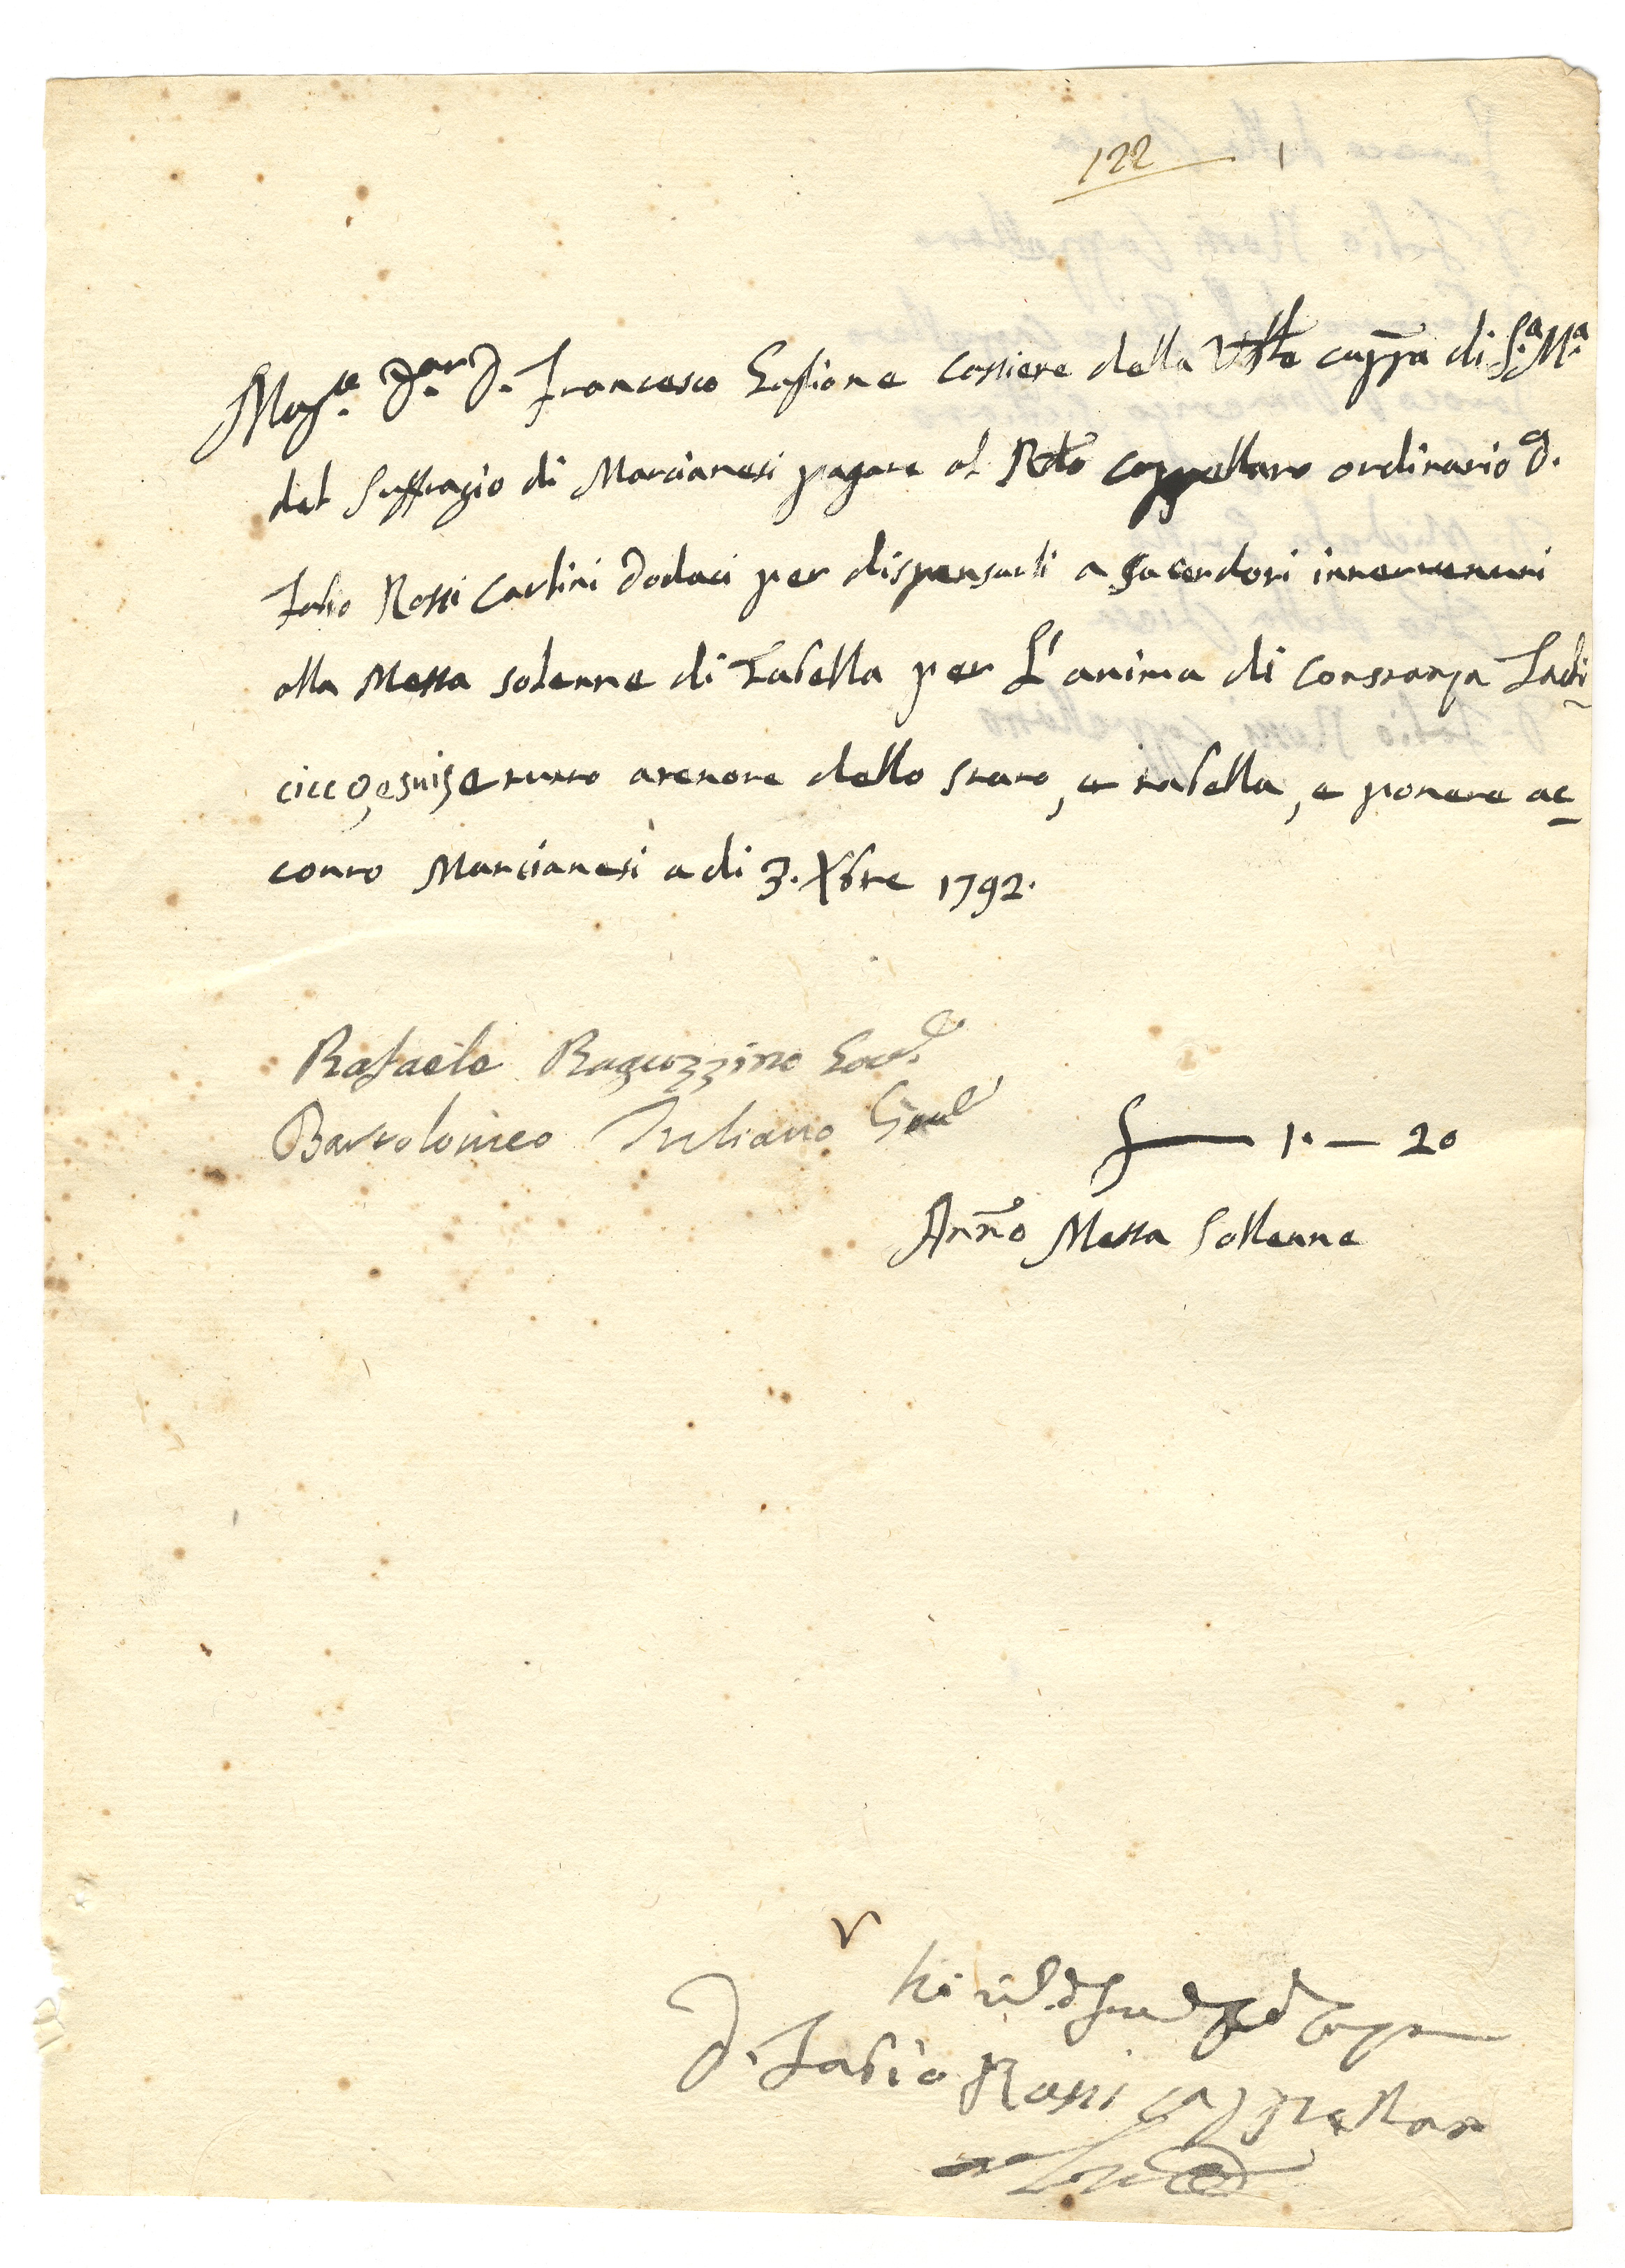 122 — 1
Mag.co D.or D. Francesco Gaglione Cassiere della V̅ble cap̅pa di S.a M.a
del Suffragio di Marcianesi pagate al R̅do Cappellano ordinario D.
Fabio Rossi Carlini Dodaci per dispensarli a Sacerdoti intervenuti
alla Messa solenne di Tabella per L'anima di Constanza Ladi
cicco, e tutto a tenore dello stato, e tabella, e ponete ac
conto Marcianesi a di 3. Xbre 1792.
Rafaele Raguzzino Gov.e
Bartolomeo Iuliano Gov.e
1.— 20
Ann̅o Messa Sollenne
D. Fabio Rossi Cappellano